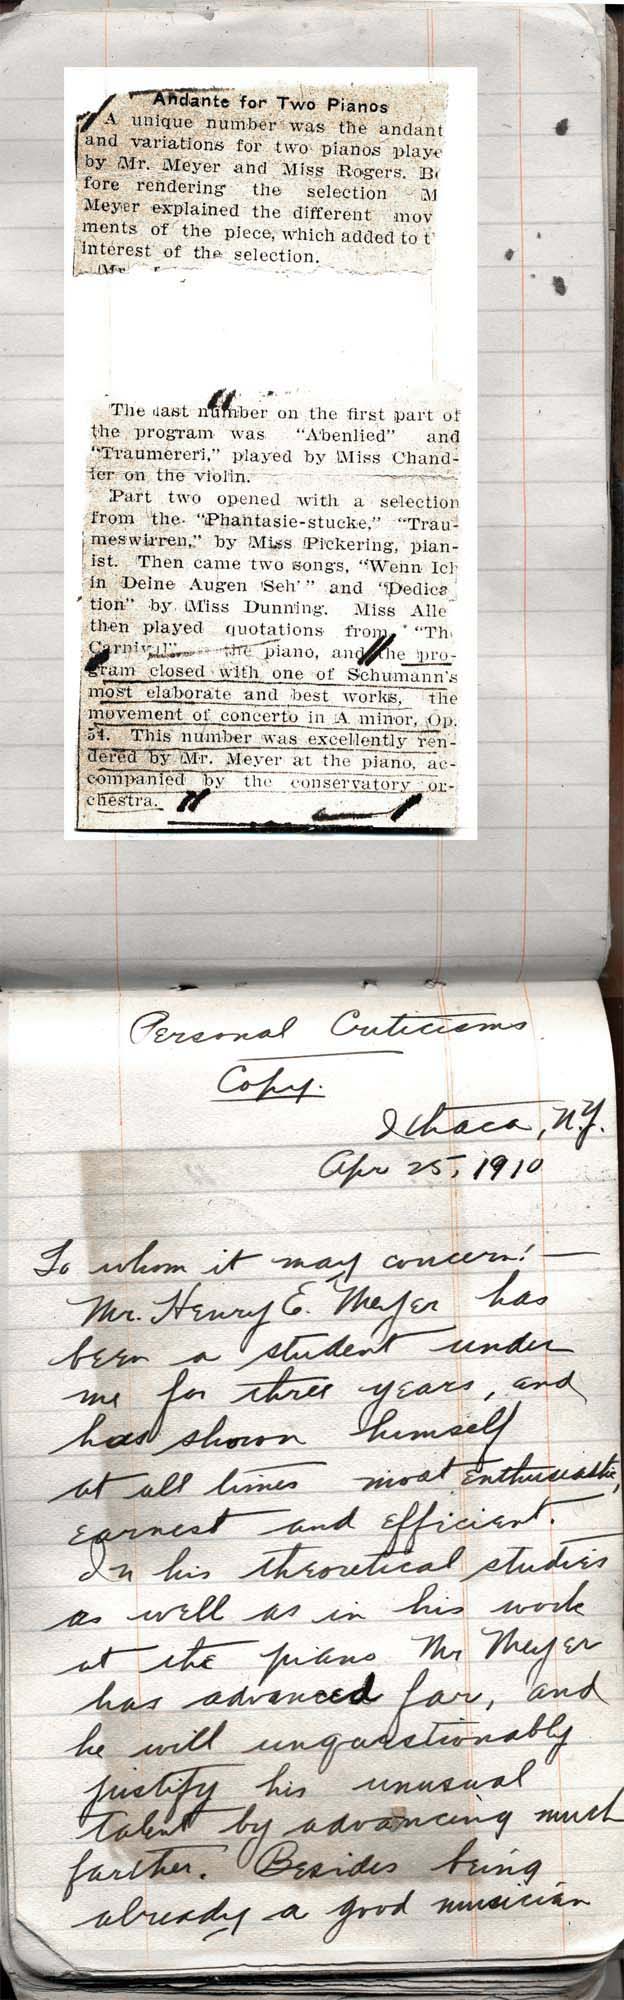 Andante for Two Pianos
A unique number was the andant
and variations for two pianos playe
by Mr. Meyer and Miss Rogers. Be
fore rendering the selection M
Meyer explained the different mov
ments of the piece, which added to t
interest of the selection.
The last number on the first part of
the program was "Abenlied" and
"Traumereri," played by Miss Chand-
ler on the violin.
Part two opened with a selection
from the "Phantasie-stucke," "Trau-
meswirren," by Miss Pickering, pian-
ist. Then came two songs, "Wenn Ich
in Deine Augen Seh'" and "Dedica
tion" by Miss Dunning. Miss Alle
then played quotations from "Th
Carnival" the piano, and the pro-
gram closed with one of Schumann's
most elaborate and best works, the
movement of concerto in A minor, Op.
54. This number was excellently ren-
dered by Mr. Meyer at the piano, ac-
companied by the conservatory or-
chestra.
Personal Criticisms
Copy.
Ithaca, N.Y.
Apr 25, 1910
To whom it may concern:—
Mr. Henry E. Meyer has
been a student under
me for three years, and
has shown himself
at all times most enthusiastic,
earnest and efficient.
In his theoretical studies
as well as in his work
at the piano Mr Meyer
has advanced far, and
he will unquestionably
justify his unusual
talent by advancing much
farther. Besides being
already a good musician